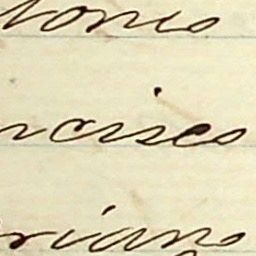 tonio
ncisco
riano